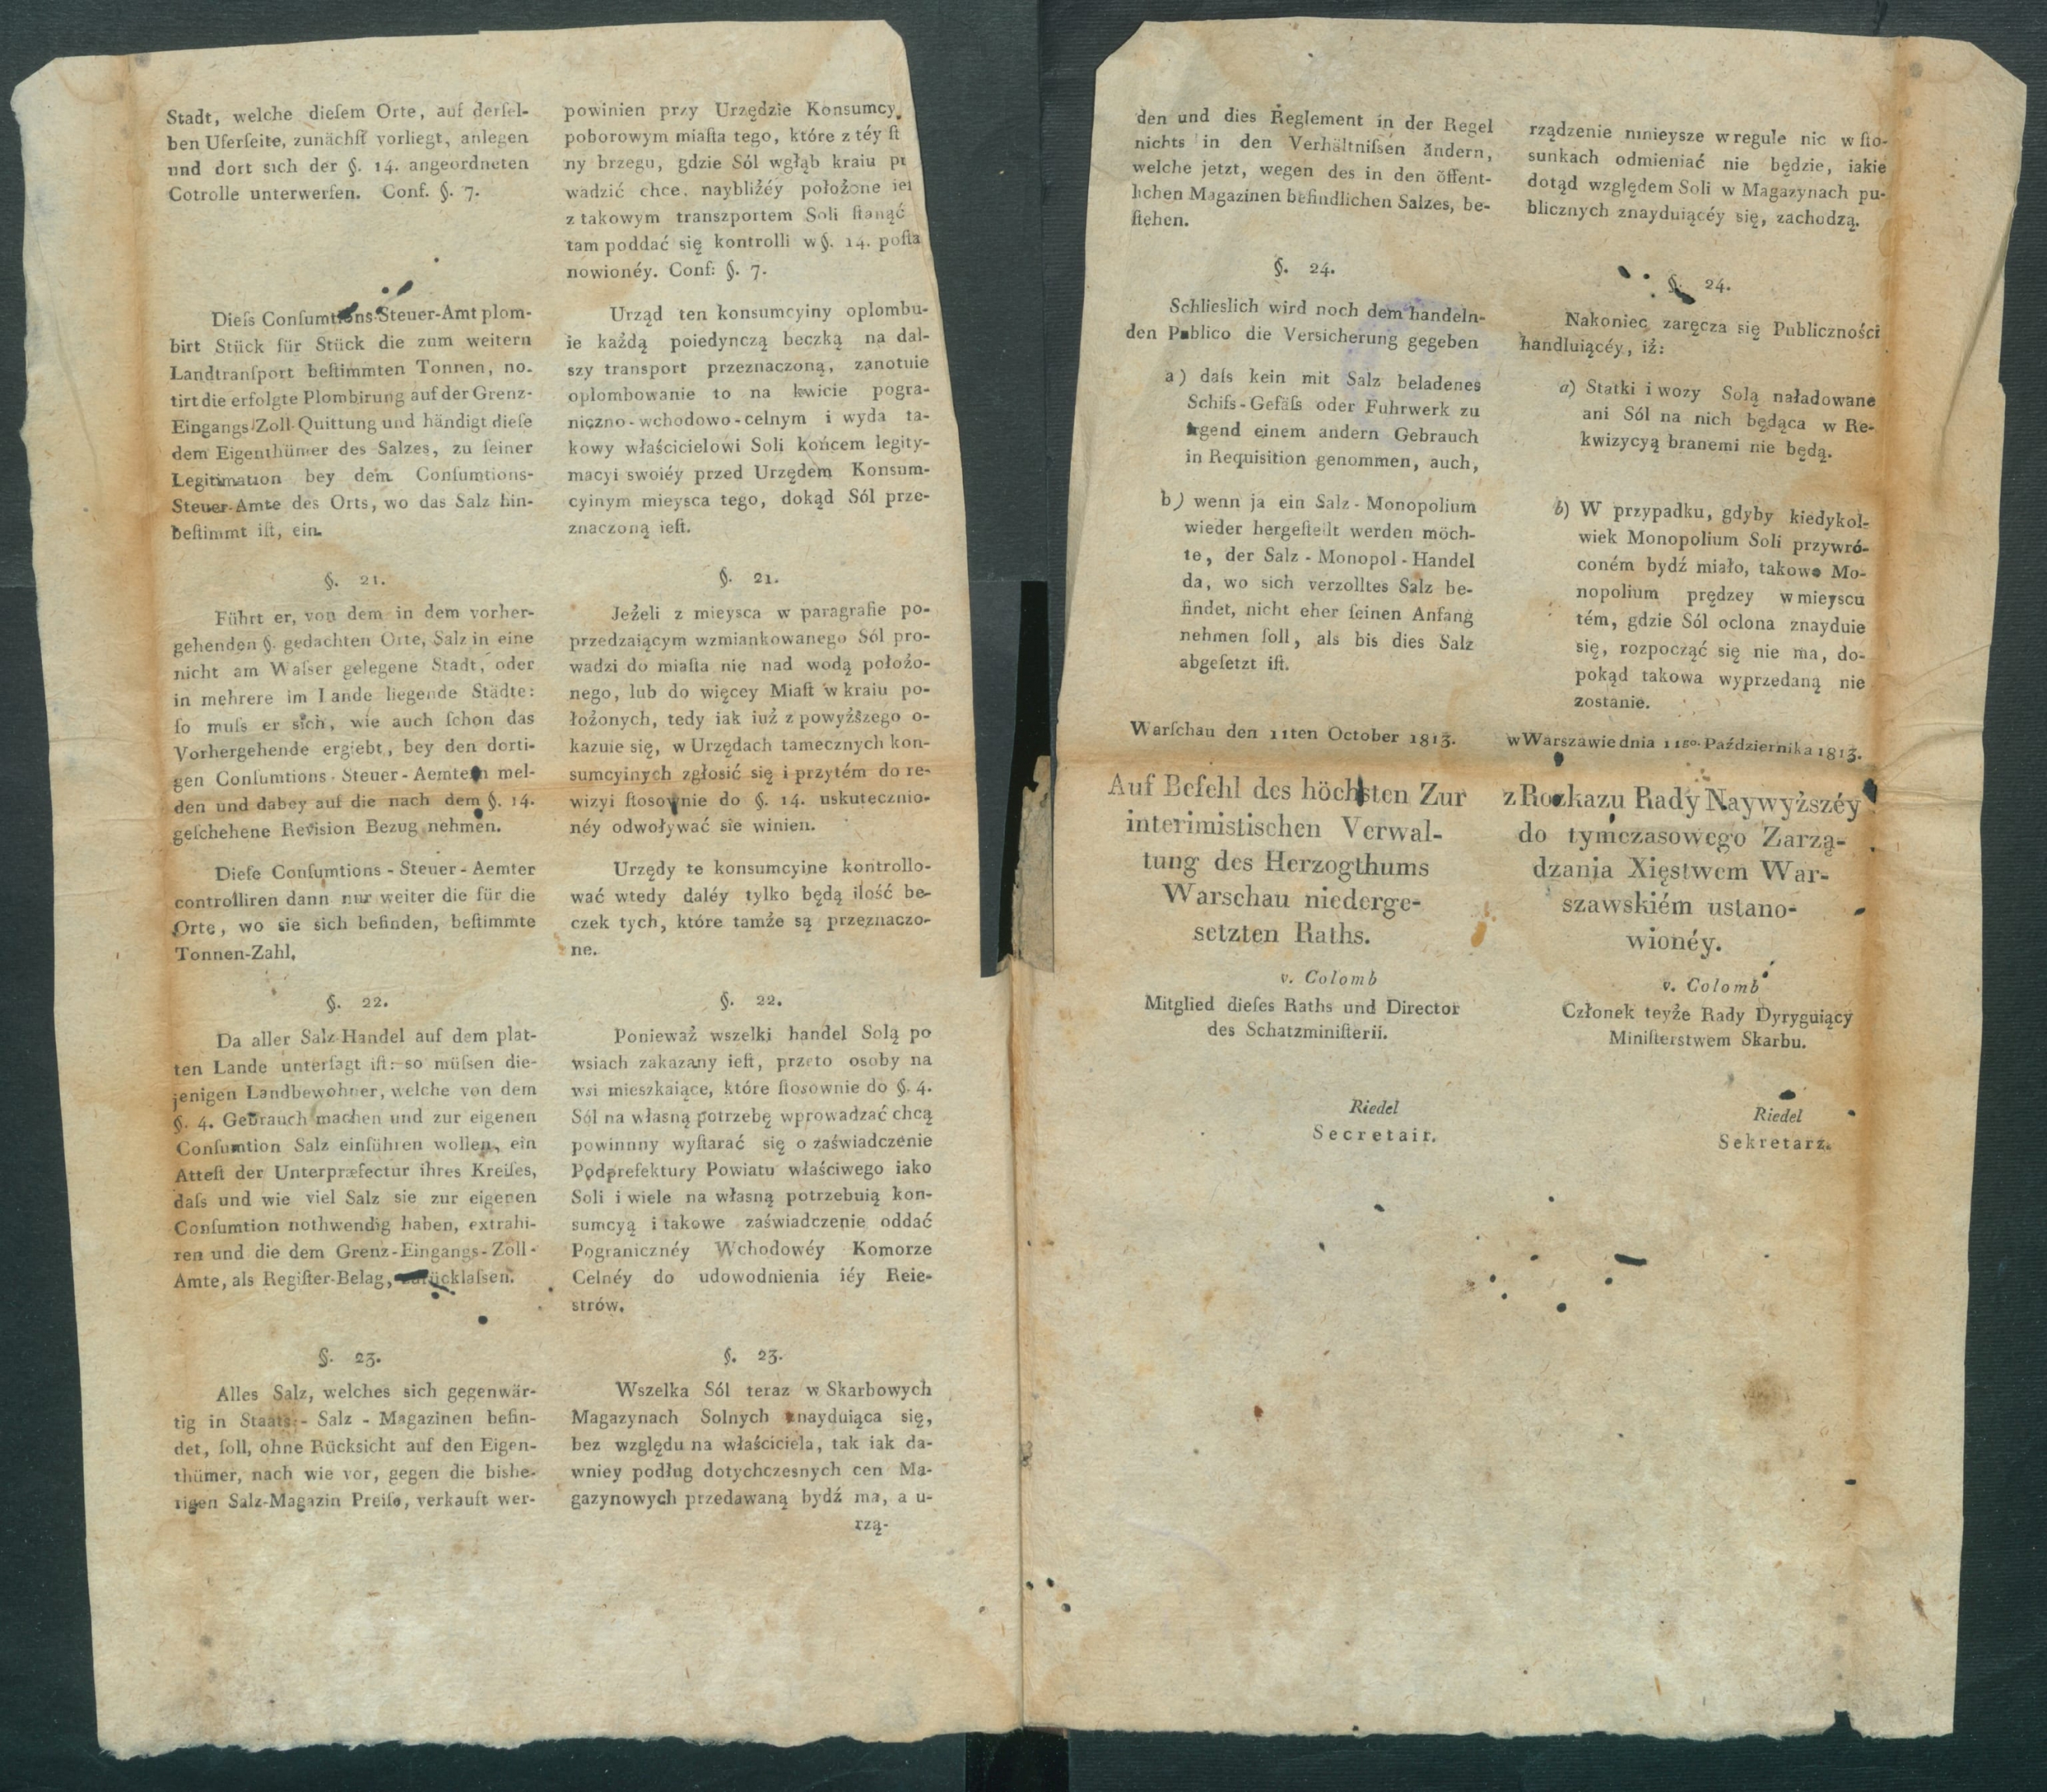 Stadt, welche dieſem Orte, auf derſel-
ben Uferſeite, zunächſt vorliegt, anlegen
und dort sich der §. 14. angeordneten
Cotrolle unterwerfen. Conf. §. 7.
Dieſs Conſumtions-Steuer-Amt plom-
birt Stück für Stück die zum weitern
Landtranſport beſtimmten Tonnen, no-
tirt die erfolgte Plombirung auf der Grenz-
Eingangs-Zoll-Quittung und händigt dieſe
dem Eigenthümer des Salzes, zu ſeiner
Legitimation bey dem Conſumtions-
Steuer-Amte des Orts, wo das Salz hin-
beſtimmt iſt, ein.
§. 21.
Führt er, von dem in dem vorher-
gehenden §. gedachten Orte, Salz in eine
nicht am Waſser gelegene Stadt, oder
in mehrere im Lande liegende Städte:
ſo muſs er sich, wie auch ſchon das
Vorhergehende ergiebt, bey den dorti-
gen Conſumtions-Steuer-Aemtern mel-
den und dabey auf die nach dem §. 14.
geſchehene Revision Bezug nehmen.
Dieſe Conſumtions-Steuer-Aemter
controlliren dann nur weiter die für die
Orte, wo sie sich befinden, beſtimmte
Tonnen-Zahl,
§. 22.
Da aller Salz-Handel auf dem plat-
ten Lande unterſagt iſt: so müſsen die-
jenigen Landbewohner, welche von dem
§. 4. Gebrauch machen und zur eigenen
Conſumtion Salz einführen wollen, ein
Atteſt der Unterpræfectur ihres Kreiſes,
daſs und wie viel Salz sie zur eigenen
Conſumtion nothwendig haben, extrahi-
ren und die dem Grenz-Eingangs-Zoll-
Amte, als Regiſter-Belag, zurücklaſsen.
§. 23.
Alles Salz, welches sich gegenwär-
tig in Staats-Salz-Magazinen befin-
det, ſoll, ohne Rücksicht auf den Eigen-
thümer, nach wie vor, gegen die bishe-
rigen Salz-Magazin Preiſe, verkauft wer-
powinien przy Urzędzie Konsumcy
poborowym miaſta tego, które z téy ſt
ny brzegu, gdzie Sól wgłąb kraiu
wadzić chce, naybliżéy położone
z takowym transzportem Soli ſtanąć
tam poddać się kontrolli w §. 14. poſta
nowionéy. Conf: §. 7.
Urząd ten konsumcyiny oplombu-
ie każdą poiedynczą beczką na dal-
szy transport przeznaczoną, zanotuie
oplombowanie to na kwicie pogra-
niczno-wchodowo-celnym i wyda ta-
kowy właścicielowi Soli końcem legity-
macyi swoiéy przed Urzędem Konsum-
cyinym mieysca tego, dokąd Sól prze-
znaczoną ieſt.
§. 21.
Jeżeli z mieysca w paragrafie po-
przedzaiącym wzmiankowanego Sól pro-
wadzi do miaſta nie nad wodą położo-
nego, lub do więcey Miaſt w kraiu po-
łożonych, tedy iak iuż z powyższego o-
kazuie się, w Urzędach tamecznych kon-
sumcyinych zgłosić się i przytém do re-
wizyi ſtosownie do §. 14. uskutecznio-
néy odwoływać sie winien.
Urzędy te konsumcyine kontrollo-
wać wtedy daléy tylko będą ilość be-
czek tych, które tamże są przeznaczo-
ne.
§. 22.
Ponieważ wszelki handel Solą po
wsiach zakazany ieſt, przeto osoby na
wsi mieszkaiące, które ſtosownie do §. 4.
Sól na własną potrzebę wprowadzać chcą
powinnny wyſtarać się o zaświadczenie
Podprefektury Powiatu właściwego iako
Soli i wiele na własną potrzebuią kon-
sumcyą i takowe zaświadczenie oddać
Pogranicznéy Wchodowéy Komorze
Celnéy do udowodnienia iéy Reie-
strów.
§. 23.
Wszelka Sól teraz w Skarbowych
Magazynach Solnych znayduiąca się,
bez względu na właściciela, tak iak da-
wniey podług dotychczesnych cen Ma-
gazynowych przedawaną bydź ma, a u-
rzą-
den und dies Reglement in der Regel
nichts in den Verhältniſsen ändern,
welche jetzt, wegen des in den öffent-
lichen Magazinen befindlichen Salzes, be-
ſtehen.
§. 24.
Schlieslich wird noch dem handeln-
den Publico die Versicherung gegeben
a) daſs kein mit Salz beladenes
Schifs-Gefäſs oder Fuhrwerk zu
irgend einem andern Gebrauch
in Requisition genommen, auch,
b) wenn ja ein Salz-Monopolium
wieder hergeſtellt werden möch-
te, der Salz-Monopol-Handel
da, wo sich verzolltes Salz be-
findet, nicht eher ſeinen Anfang
nehmen ſoll, als bis dies Salz
abgeſetzt iſt.
Warſchau den 11ten October 1813.
Auf Befehl des höchsten Zur
interimistischen Verwal-
tung des Herzogthums
Warschau niederge-
setzten Raths.
v. Colomb
Mitglied dieſes Raths und Director
des Schatzminiſterii.
Riedel
Secretair.
rządzenie ninieysze w regule nic w ſto-
sunkach odmieniać nie będzie, iakie
dotąd względem Soli w Magazynach pu-
blicznych znayduiącéy się, zachodzą.
§. 24.
Nakoniec zaręcza się Publiczności
handluiącéy, iż:
a) Statki i wozy Solą naładowane
ani Sól na nich będąca w Re-
kwizycyą branemi nie będą.
b) W przypadku, gdyby kiedykol-
wiek Monopolium Soli przywró-
coném bydź miało, takowe Mo-
nopolium prędzey w mieyscu
tém, gdzie Sól oclona znayduie
się, rozpocząć się nie ma, do-
pokąd takowa wyprzedaną nie
zostanie.
w Warszawie dnia 11go. Października 1813.
z Rozkazu Rady Naywyższéy
do tymczasowego Zarzą-
dzania Xięstwem War-
szawskiém ustano-
wionéy.
v. Colomb
Członek teyże Rady Dyryguiący
Miniſterstwem Skarbu.
Riedel
Sekretarz.